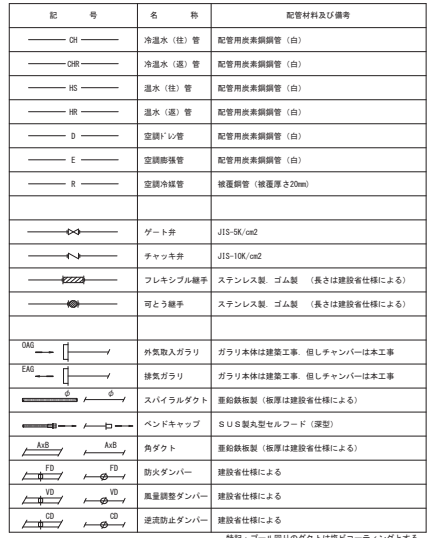 記 号 名 称 配管材料及び備考
CH 冷温水（往）管 配管用炭素鋼鋼管（白）
CHR 冷温水（返）管 配管用炭素鋼鋼管（白）
HS 温水（往）管 配管用炭素鋼鋼管（白）
HR 温水（返）管 配管用炭素鋼鋼管（白）
D 空調ドレン管 配管用炭素鋼鋼管（白）
E 空調膨張管 配管用炭素鋼鋼管（白）
R 空調冷媒管 被覆銅管（被覆厚さ20mm）
ゲート弁 JIS-5K/cm2
チャッキ弁 JIS-10K/cm2
フレキシブル継手 ステンレス製．ゴム製 （長さは建設省仕様による）
可とう継手 ステンレス製．ゴム製 （長さは建設省仕様による）
OAG 外気取入ガラリ ガラリ本体は建築工事．但しチャンバーは本工事
EAG 排気ガラリ ガラリ本体は建築工事．但しチャンバーは本工事
φ φ スパイラルダクト 亜鉛鉄板製（板厚は建設省仕様による）
ベンドキャップ SUS製丸型セルフード（深型）
AxB AxB 角ダクト 亜鉛鉄板製（板厚は建設省仕様による）
FD FD 防火ダンパー 建設省仕様による
VD VD 風量調整ダンパー 建設省仕様による
CD CD 逆流防止ダンパー 建設省仕様による